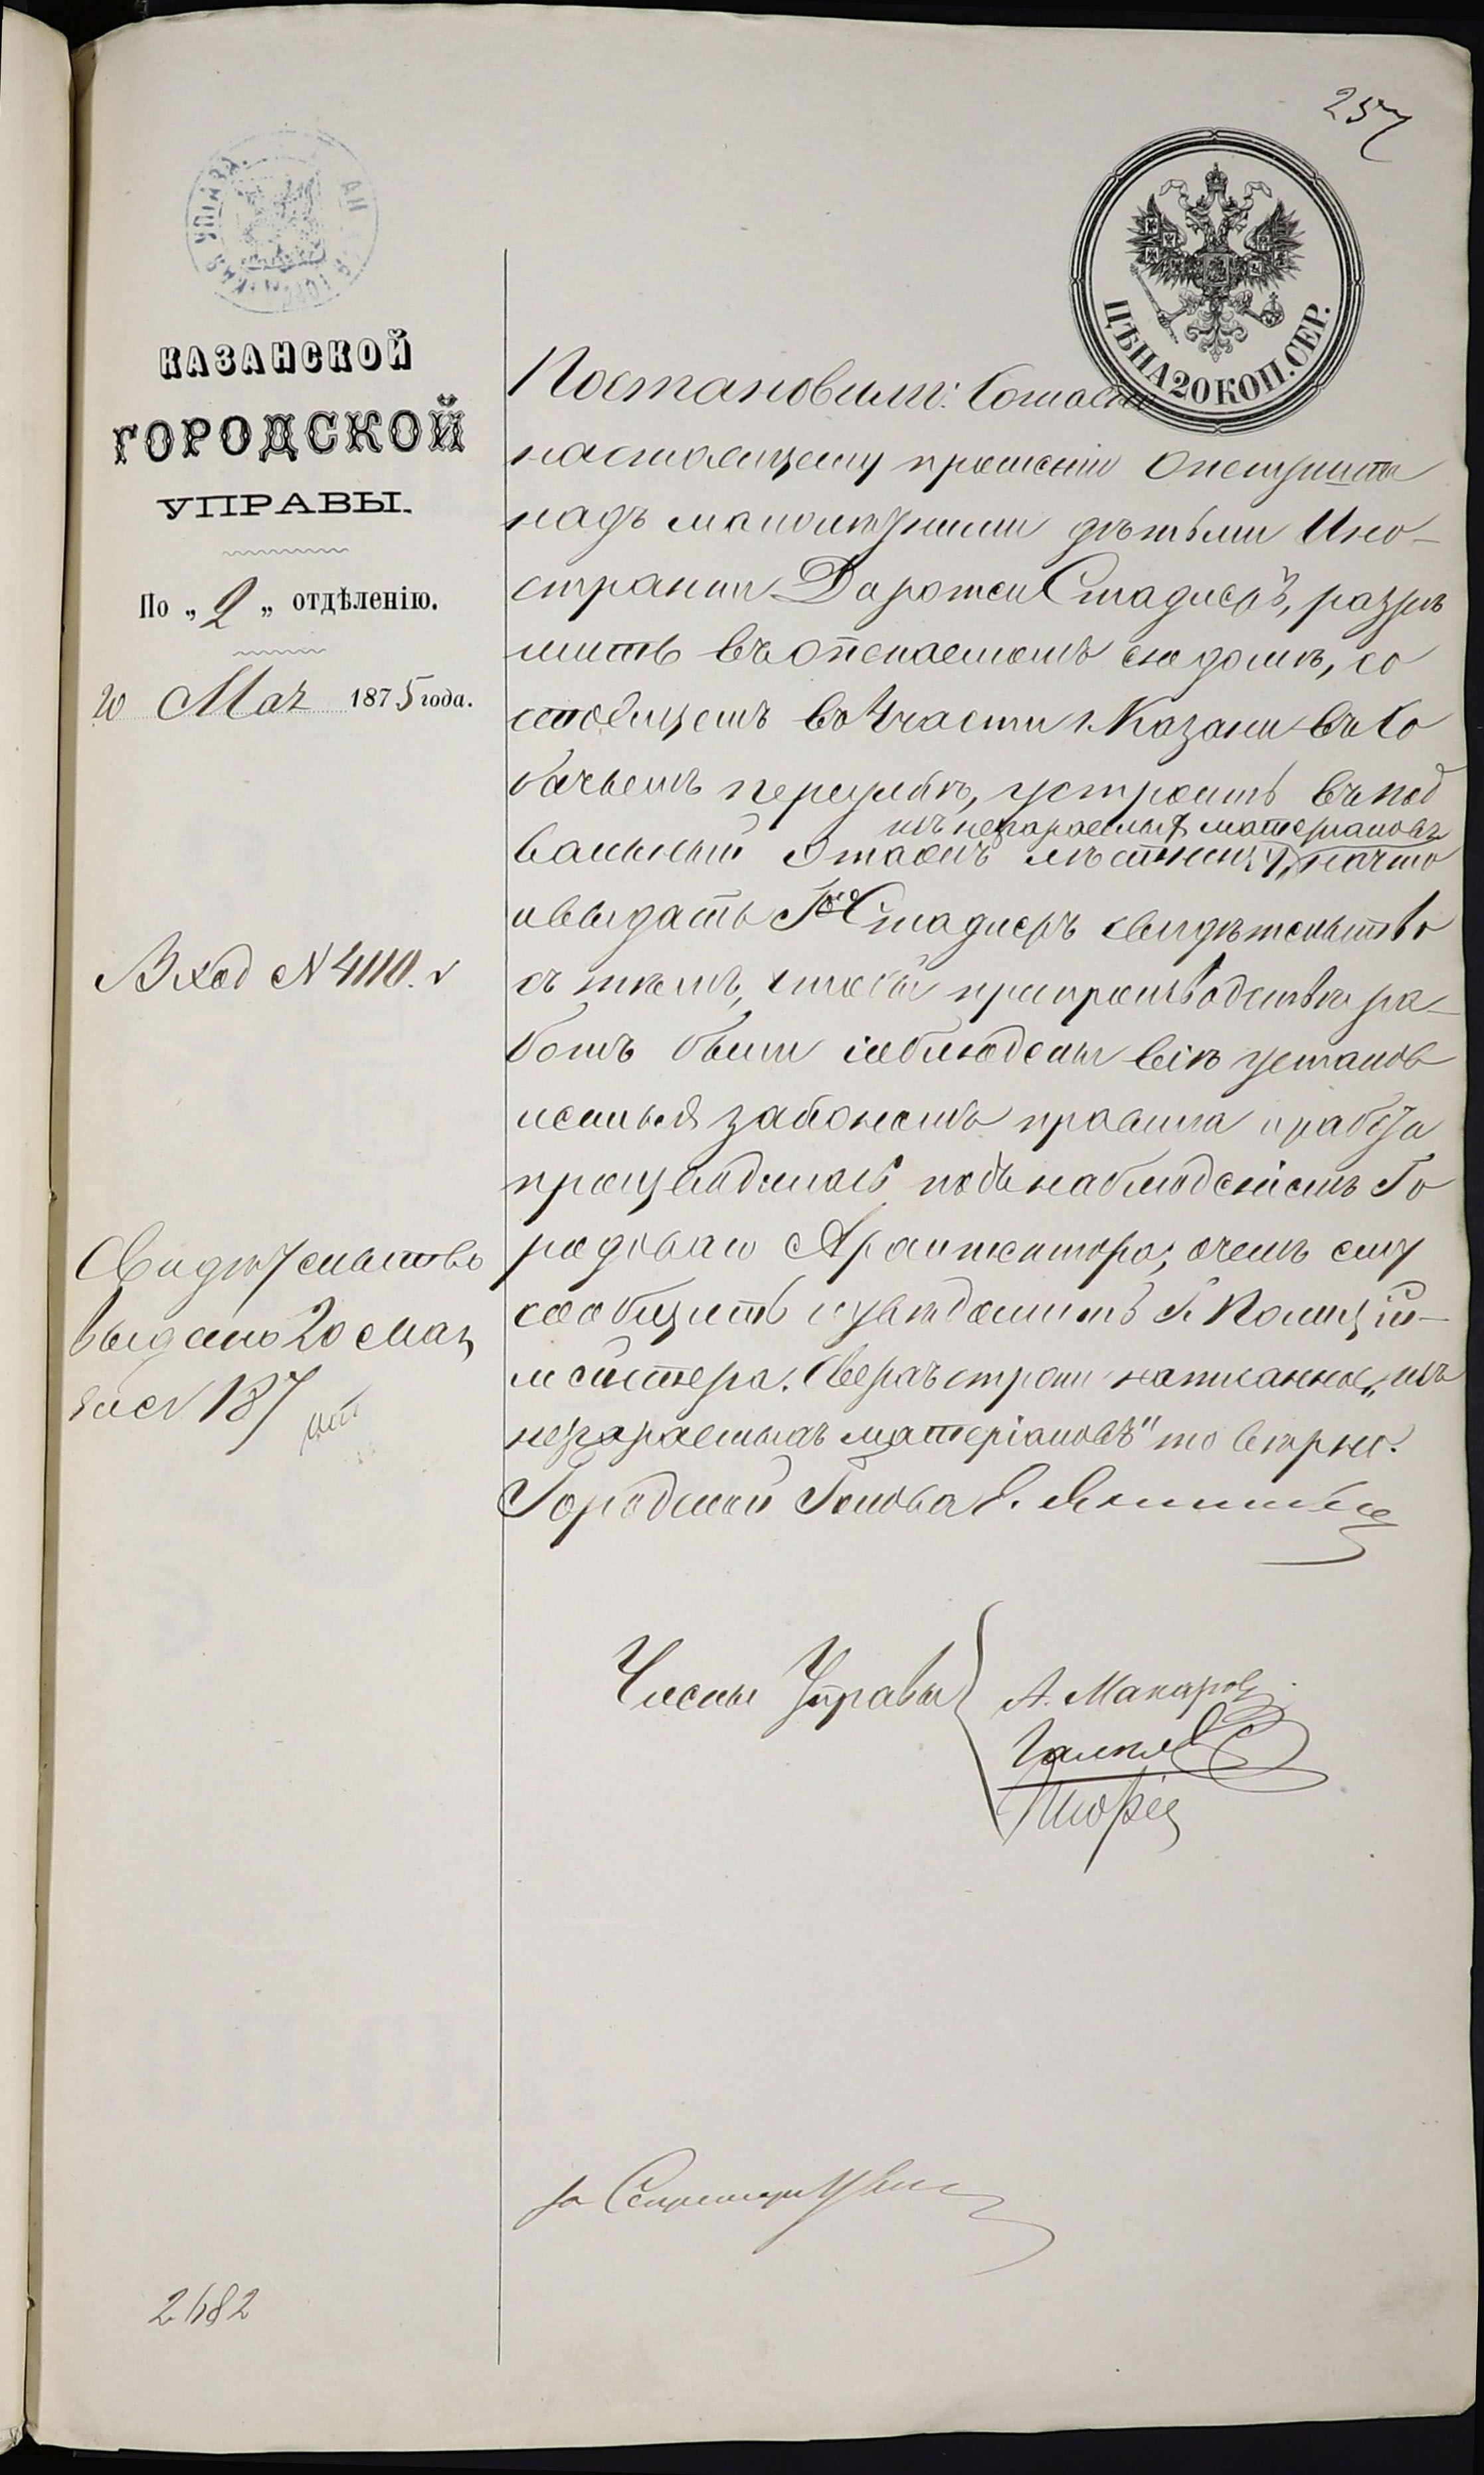 257
ЦѢНА 20 КОП. СЕР.
КАЗАНСКОЙ
ГОРОДСКОЙ
УПРАВЫ.
По „ 2 „ отдѣленію.
20 Мая 1875 года.
Вход № 4110.
Свидѣтельство
выдано 20 Мая
187
2682
Постановили: Согласно
настоящему прошенію Опекунши
надъ малолѣтними дѣтьми Ино-
странки Доротеи Стадлеръ, разрѣ
шить въ опекаемомъ ею домѣ, со
стоящемъ во 2 части г. Казани въ Со
бачьемъ переулкѣ, устроить въ под
изъ несгораемыхъ матерiаловъ
вальный этажъ лѣстницу, на что
и выдать Г-жѣ Стадлеръ свидѣтельство
съ тѣмъ, чтобы при производствѣ ра-
ботъ были соблюдены всѣ установ
ленныя закономъ правила и работа
производилась подъ наблюденіемъ Го
родоваго Архитектора, о чемъ ему
сообщить и увѣдомить Г. Полицій-
мейстера. Сверхъ строки написанное „изъ
несгораемыхъ матеріаловъ" то вѣрно.
Городской Голова Е. Янишевскій
Члены Управы
А. Макаровъ
за Секретаря